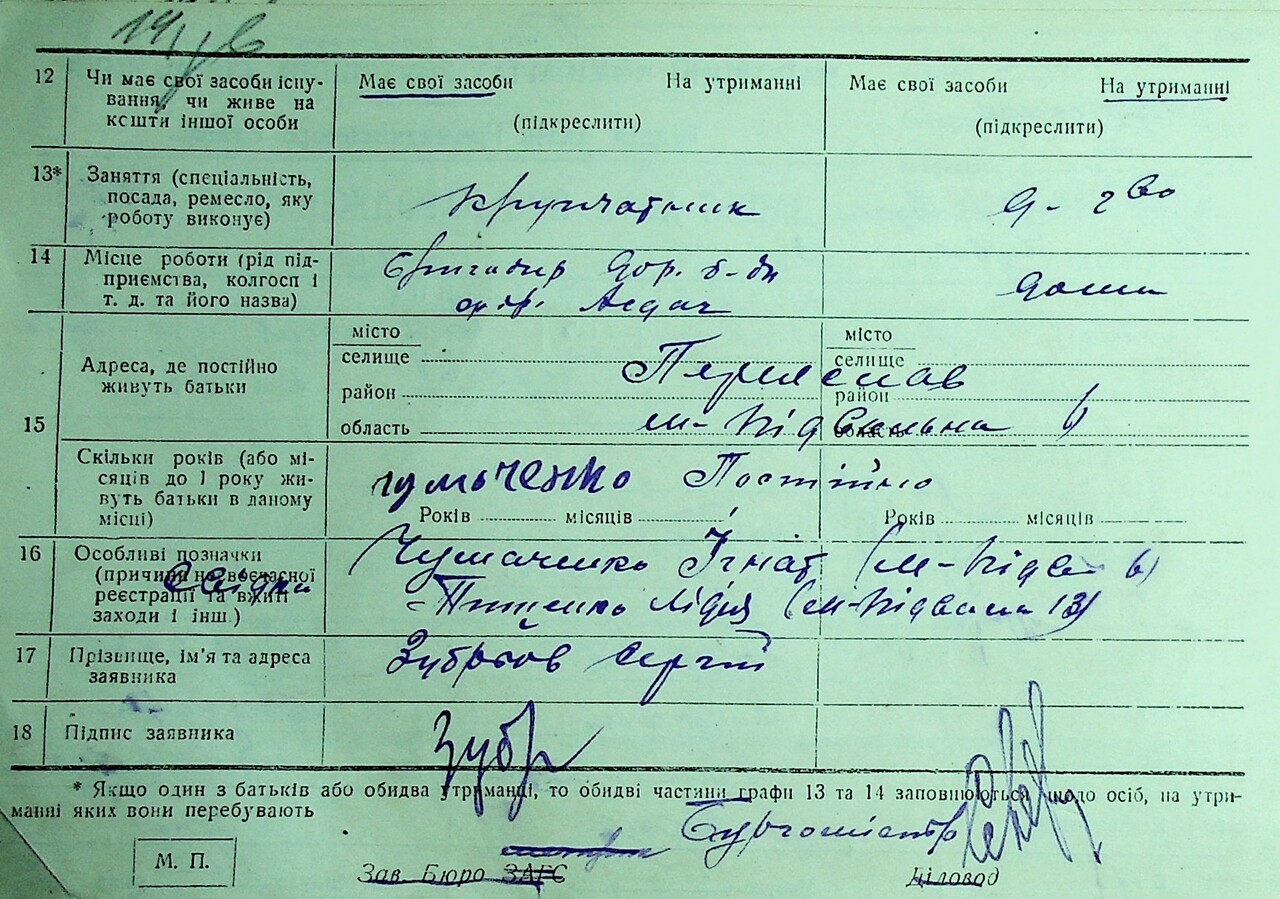 12 Чи має свої засоби існу- Має свої засоби На утриманні Має свої засоби На утриманні
вання, чи живе на (підкреслити) (підкреслити)
кошти іншої особи
13* Заняття (спеціальність,
посада, ремесло, яку Крупчатник
роботу виконує)
14 Місце роботи (рід під- Бригадир
приємства, колгосп і дома
т. д. та його назва)
місто місто
селище селище
Адреса, де постійно Переяслав
живуть батьки
район район
15 область область
м-Підвальна 6
Скільки років (або мі-
сяців до 1 року жи- Чумаченко Постійно
вуть батьки в даному
місці) Років місяців Років місяців
16 Особливі позначки Чумаченко Ігнат (м-Підв 6)
(причини несвоєчасної Свідки
реєстрації та вжиті Лідія (м-Підвальна 13)
заходи і інш.)
17 Прізвище, ім'я та адреса Зубрьов Сергій
заявника
18 Підпис заявника Зубр
* Якщо один з батьків або обидва утриманці, то обидві частини графи 13 та 14 заповнюються щодо осіб, на утри-
манні яких вони перебувають
Бургомістр
М. П.
Зав. Бюро ЗАГС Діловод